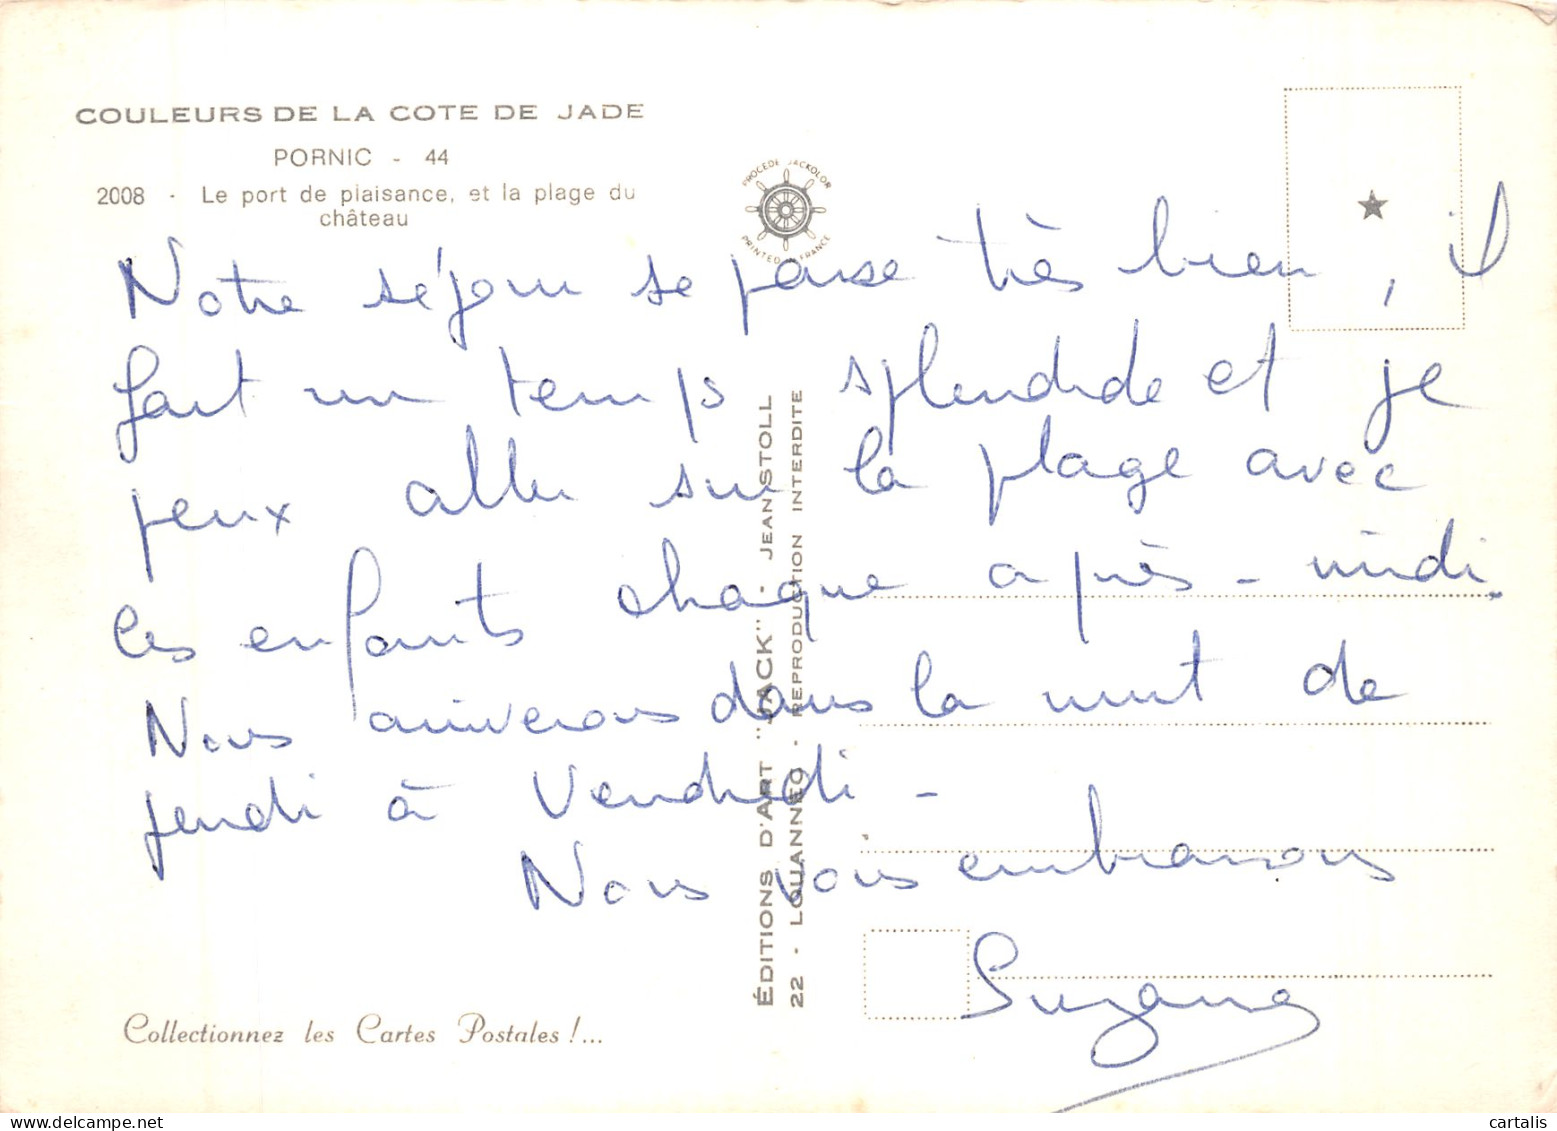 COULEURS DE LA COTE DE JADE
PORNIC - 44
2008 - Le port de plaisance, et la plage du
château
PROCEDE JACKOLOR
PRINTED IN FRANCE
Notre séjour se passe très bien, il
fait un temps splendide et je
peux aller sur la plage avec
les enfants chaque après-midi.
Nous arriverons dans la nuit de
jeudi à Vendredi -
Nous vous embrassons
Suzanne
ÉDITIONS D'ART "JACK" - JEAN STOLL
22 - LOUANNEC - REPRODUCTION INTERDITE
Collectionnez les Cartes Postales !...
cartalis